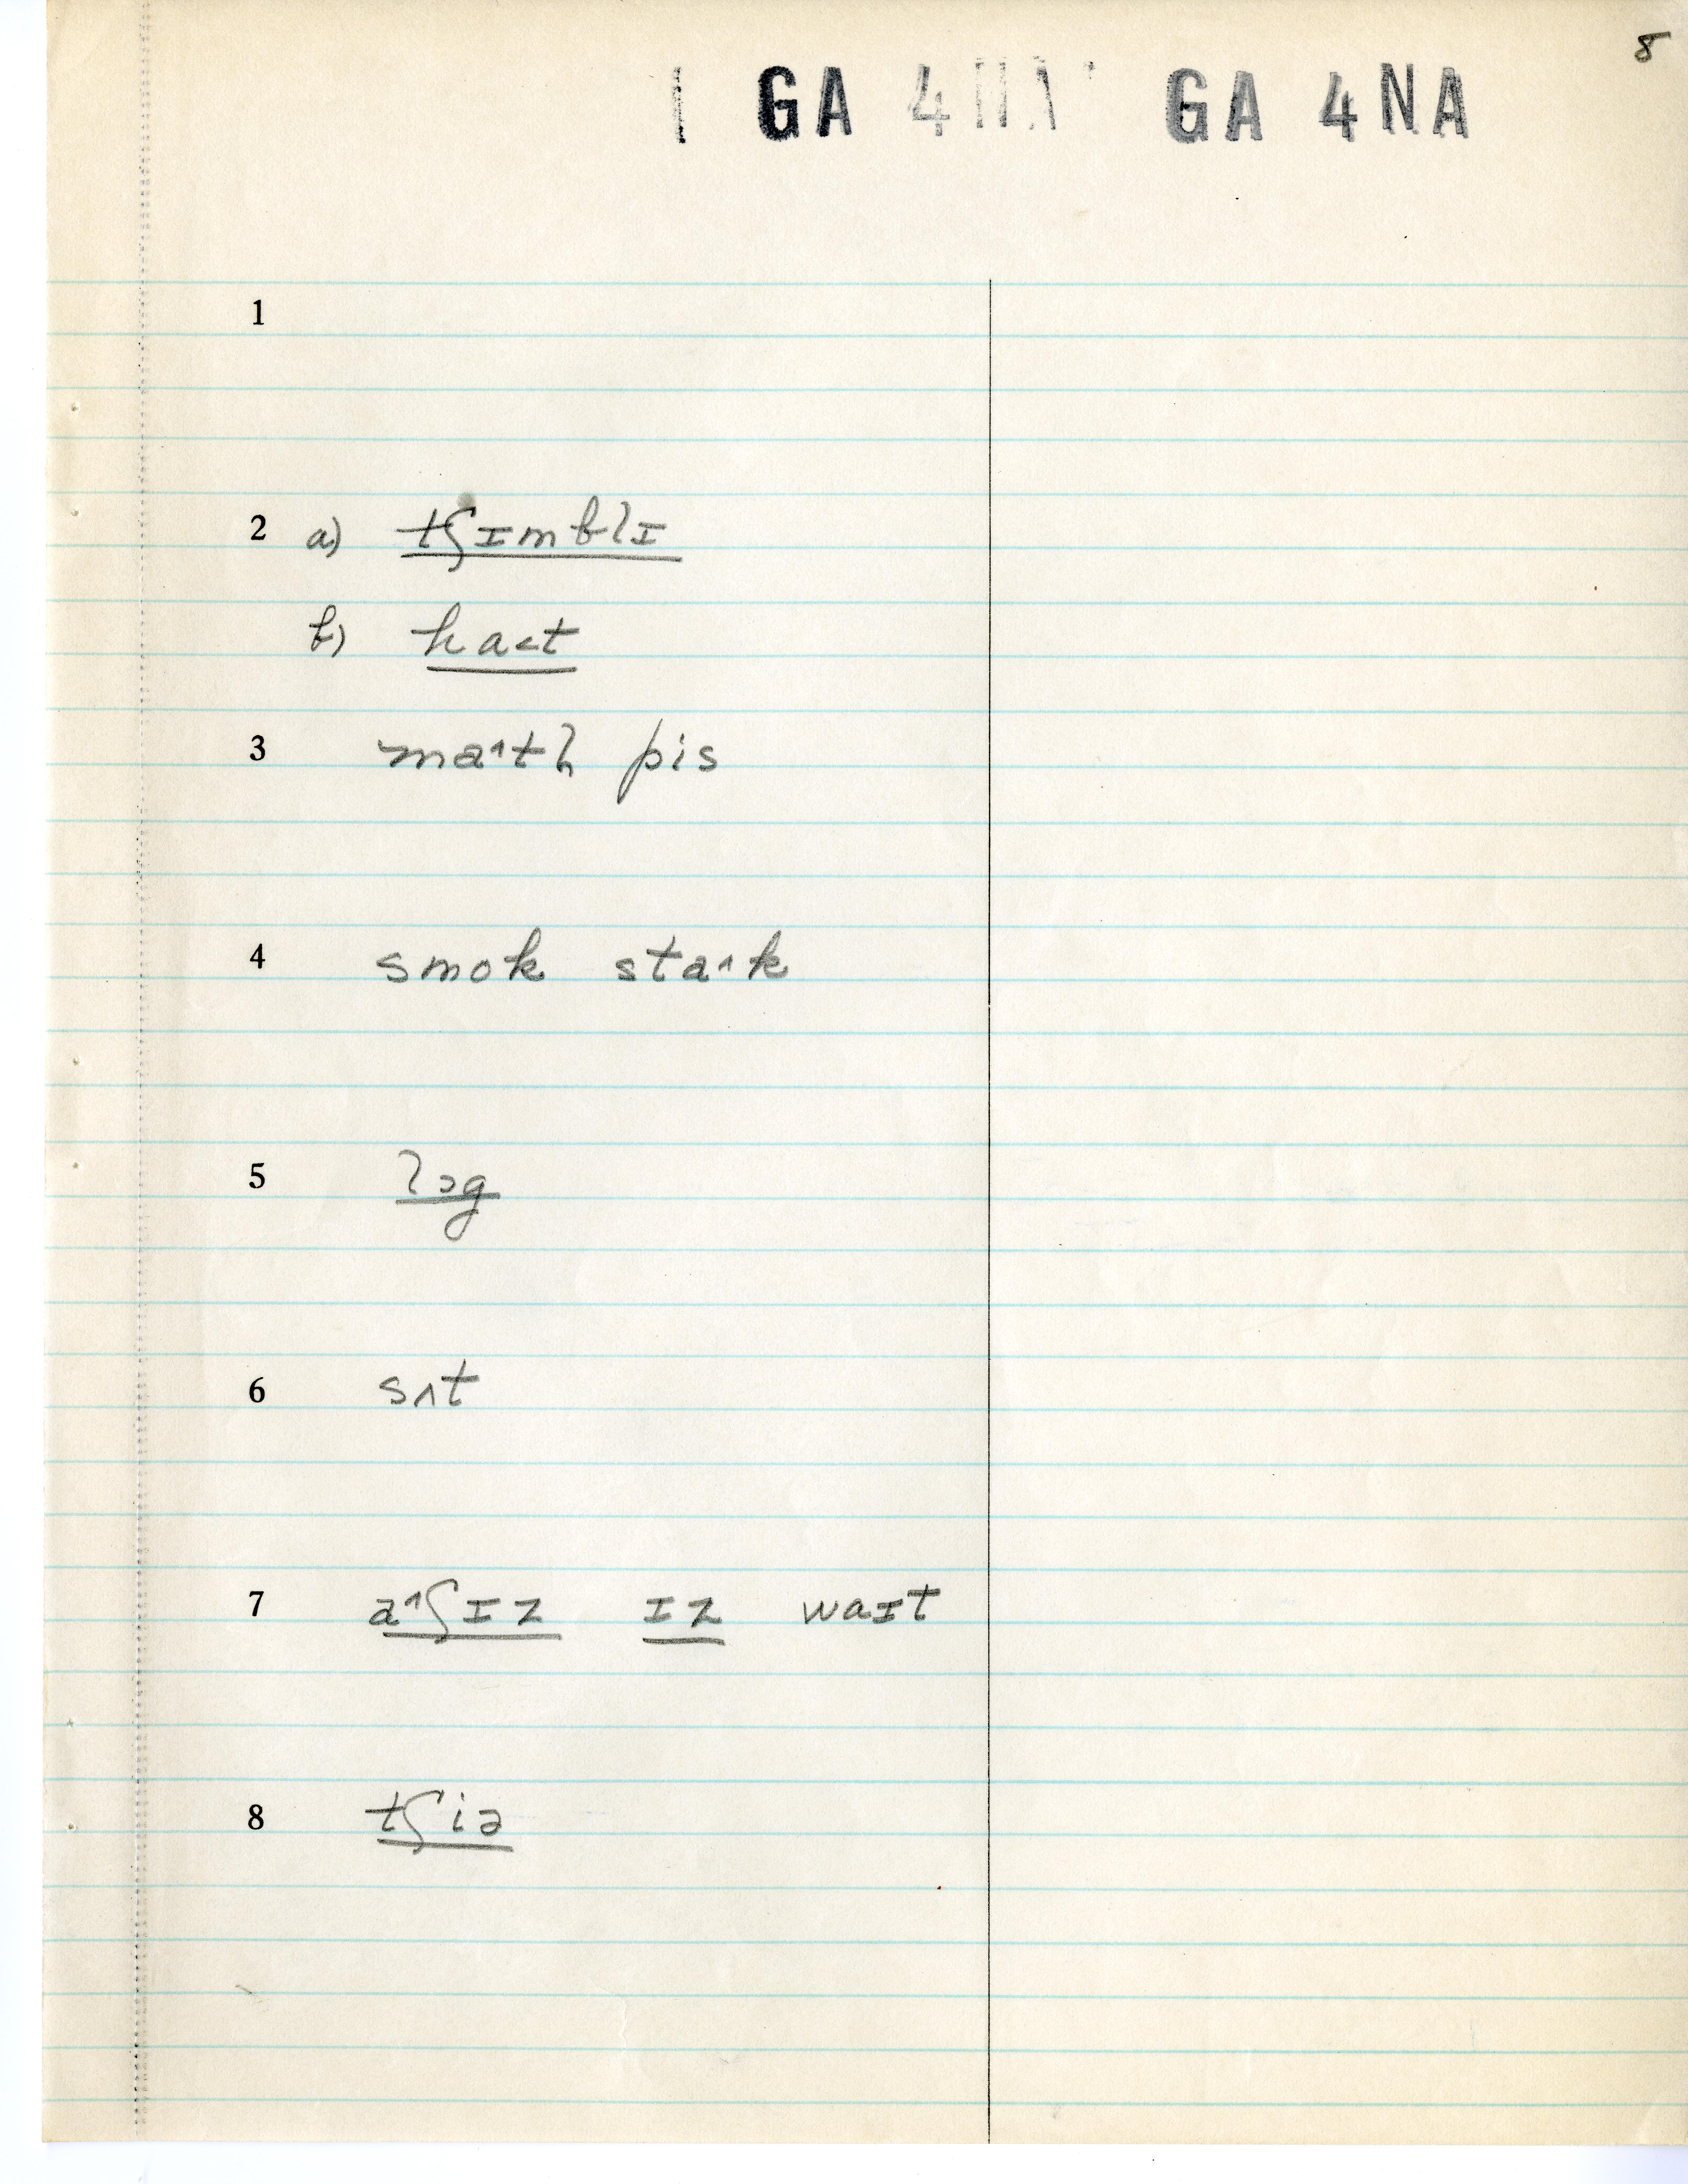 8
GA 4NA GA 4NA
1
2 a) tʃɪmblɪ
b) ha˂t
3 ma˄tl̩ pis
4 smok sta˄k
5 lɔg
6 sʌt
7 a˄ʃɪz ɪz waɪt
8 tʃiə